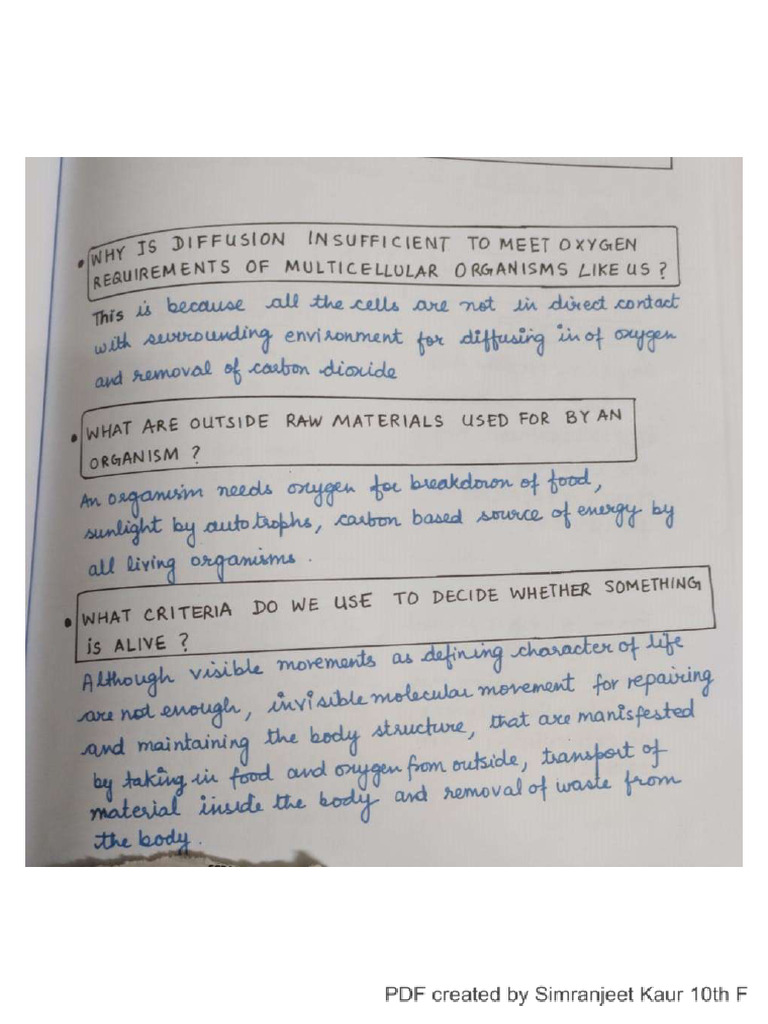 • WHY IS DIFFUSION INSUFFICIENT TO MEET OXYGEN
REQUIREMENTS OF MULTICELLULAR ORGANISMS LIKE US ?
This is because all the cells are not in direct contact
with surrounding environment for diffusing in of oxygen
and removal of carbon dioxide
• WHAT ARE OUTSIDE RAW MATERIALS USED FOR BY AN
ORGANISM ?
An organism needs oxygen for breakdown of food,
sunlight by autotrophs, carbon based source of energy by
all living organisms .
• WHAT CRITERIA DO WE USE TO DECIDE WHETHER SOMETHING
iS ALIVE ?
Although visible movements as defining character of life
are not enough, invisible molecular movement for repairing
and maintaining the body structure, that are manisfested
by taking in food and oxygen from outside, transport of
material inside the body and removal of waste from
the body .
PDF created by Simranjeet Kaur 10th F